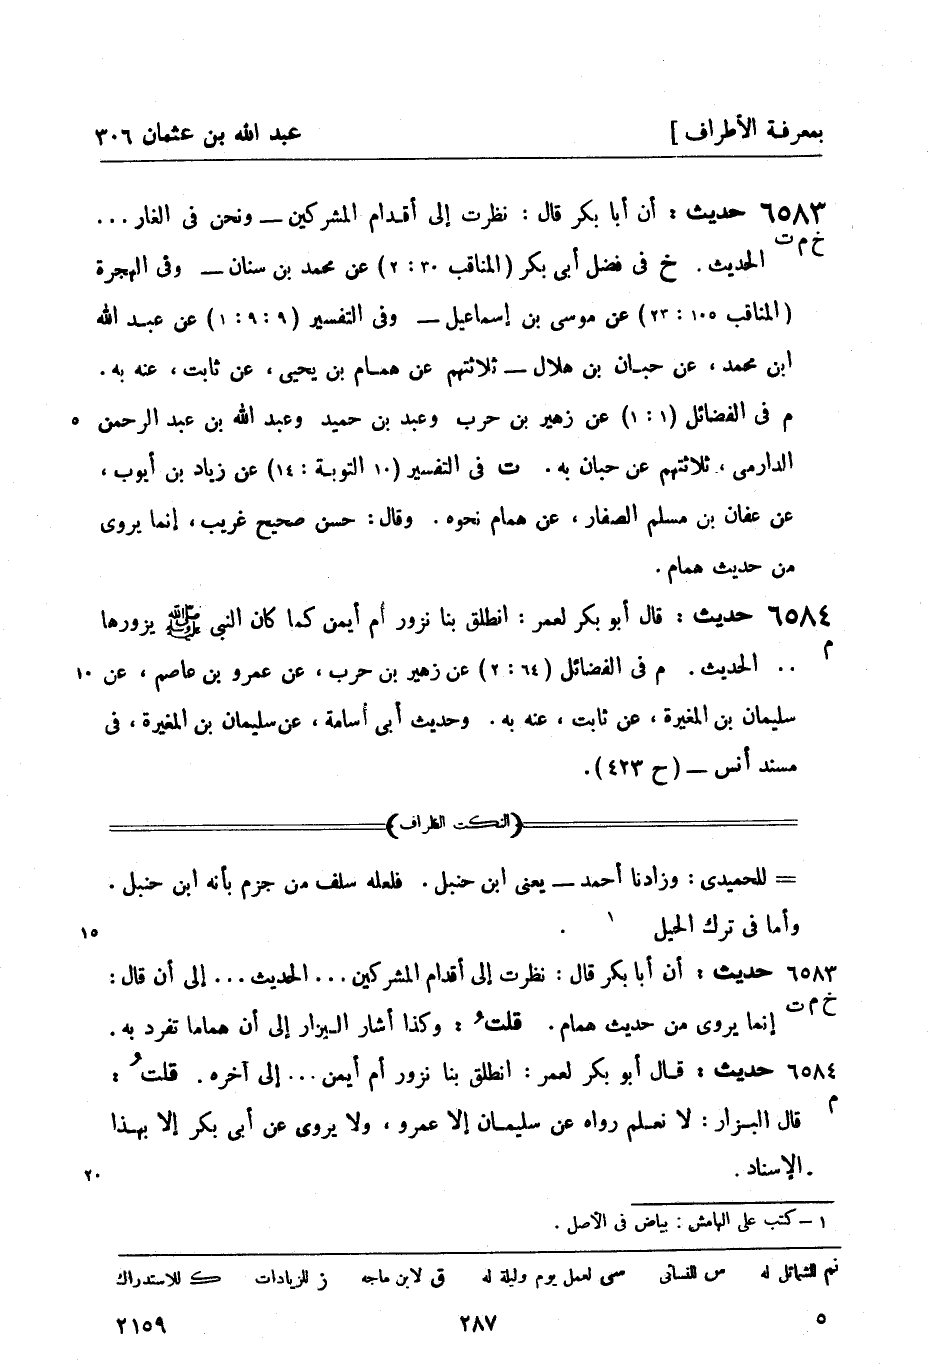 بمعرفة الأطراف ] عبد الله بن عثمان ٣٠٦
٦٥٨٣ حديث : أن أبا بكر قال : نظرت إلى أقدام المشركين — ونحن فى الغار ...
خ م ت الحديث . خ فى فضل أبى بكر (المناقب ٣٠ : ٢) عن محمد بن سنان — وفى الهجرة
(المناقب ١٠٥ : ٢٣) عن موسى بن إسماعيل — وفى التفسير (٩ : ٩ : ١) عن عبد الله
ابن محمد ، عن حبان بن هلال — ثلاثتهم عن همام بن يحيى ، عن ثابت ، عنه به .
م فى الفضائل (١ : ١) عن زهير بن حرب وعبد بن حميد وعبد الله بن عبد الرحمن ٥
الدارمى ، ثلاثتهم عن حبان به . ت فى التفسير (١٠ التوبة : ١٤) عن زياد بن أيوب ،
عن عفان بن مسلم الصفار ، عن همام نحوه . وقال : حسن صحيح غريب ، إنما يروى
من حديث همام .
٦٥٨٤ حديث : قال أبو بكر لعمر : انطلق بنا نزور أم أيمن كما كان النبى ﷺ يزورها
م .. الحديث . م فى الفضائل (٦٤ : ٢) عن زهير بن حرب ، عن عمرو بن عاصم ، عن ١٠
سليمان بن المغيرة ، عن ثابت ، عنه به . وحديث أبى أسامة ، عن سليمان بن المغيرة ، فى
مسند أنس — (ح ٤٢٣) .
(النكت الظراف)
= للحميدى : وزادنا أحمد — يعنى ابن حنبل . فلعله سلف من جزم بأنه ابن حنبل .
وأما فى ترك الحيل ١ . ١٥
٦٥٨٣ حديث : أن أبا بكر قال : نظرت إلى أقدام المشركين ... الحديث ... إلى أن قال :
خ م ت إنما يروى من حديث همام . قلتُ : وكذا أشار البزار إلى أن هماما تفرد به .
٦٥٨٤ حديث : قال أبو بكر لعمر : انطلق بنا نزور أم أيمن ... إلى آخره . قلتُ :
م قال البزار : لا نعلم رواه عن سليمان إلا عمرو ، ولا يروى عن أبى بكر إلا بهذا
الإسناد . ٢٠
١ – كتب على الهامش : بياض فى الأصل .
تم الشمائل له س للنسائى سى لعمل يوم وليلة له ق لابن ماجه ز للزيادات ك للاستدراك
٥ ٢٨٧ ٢١٥٩